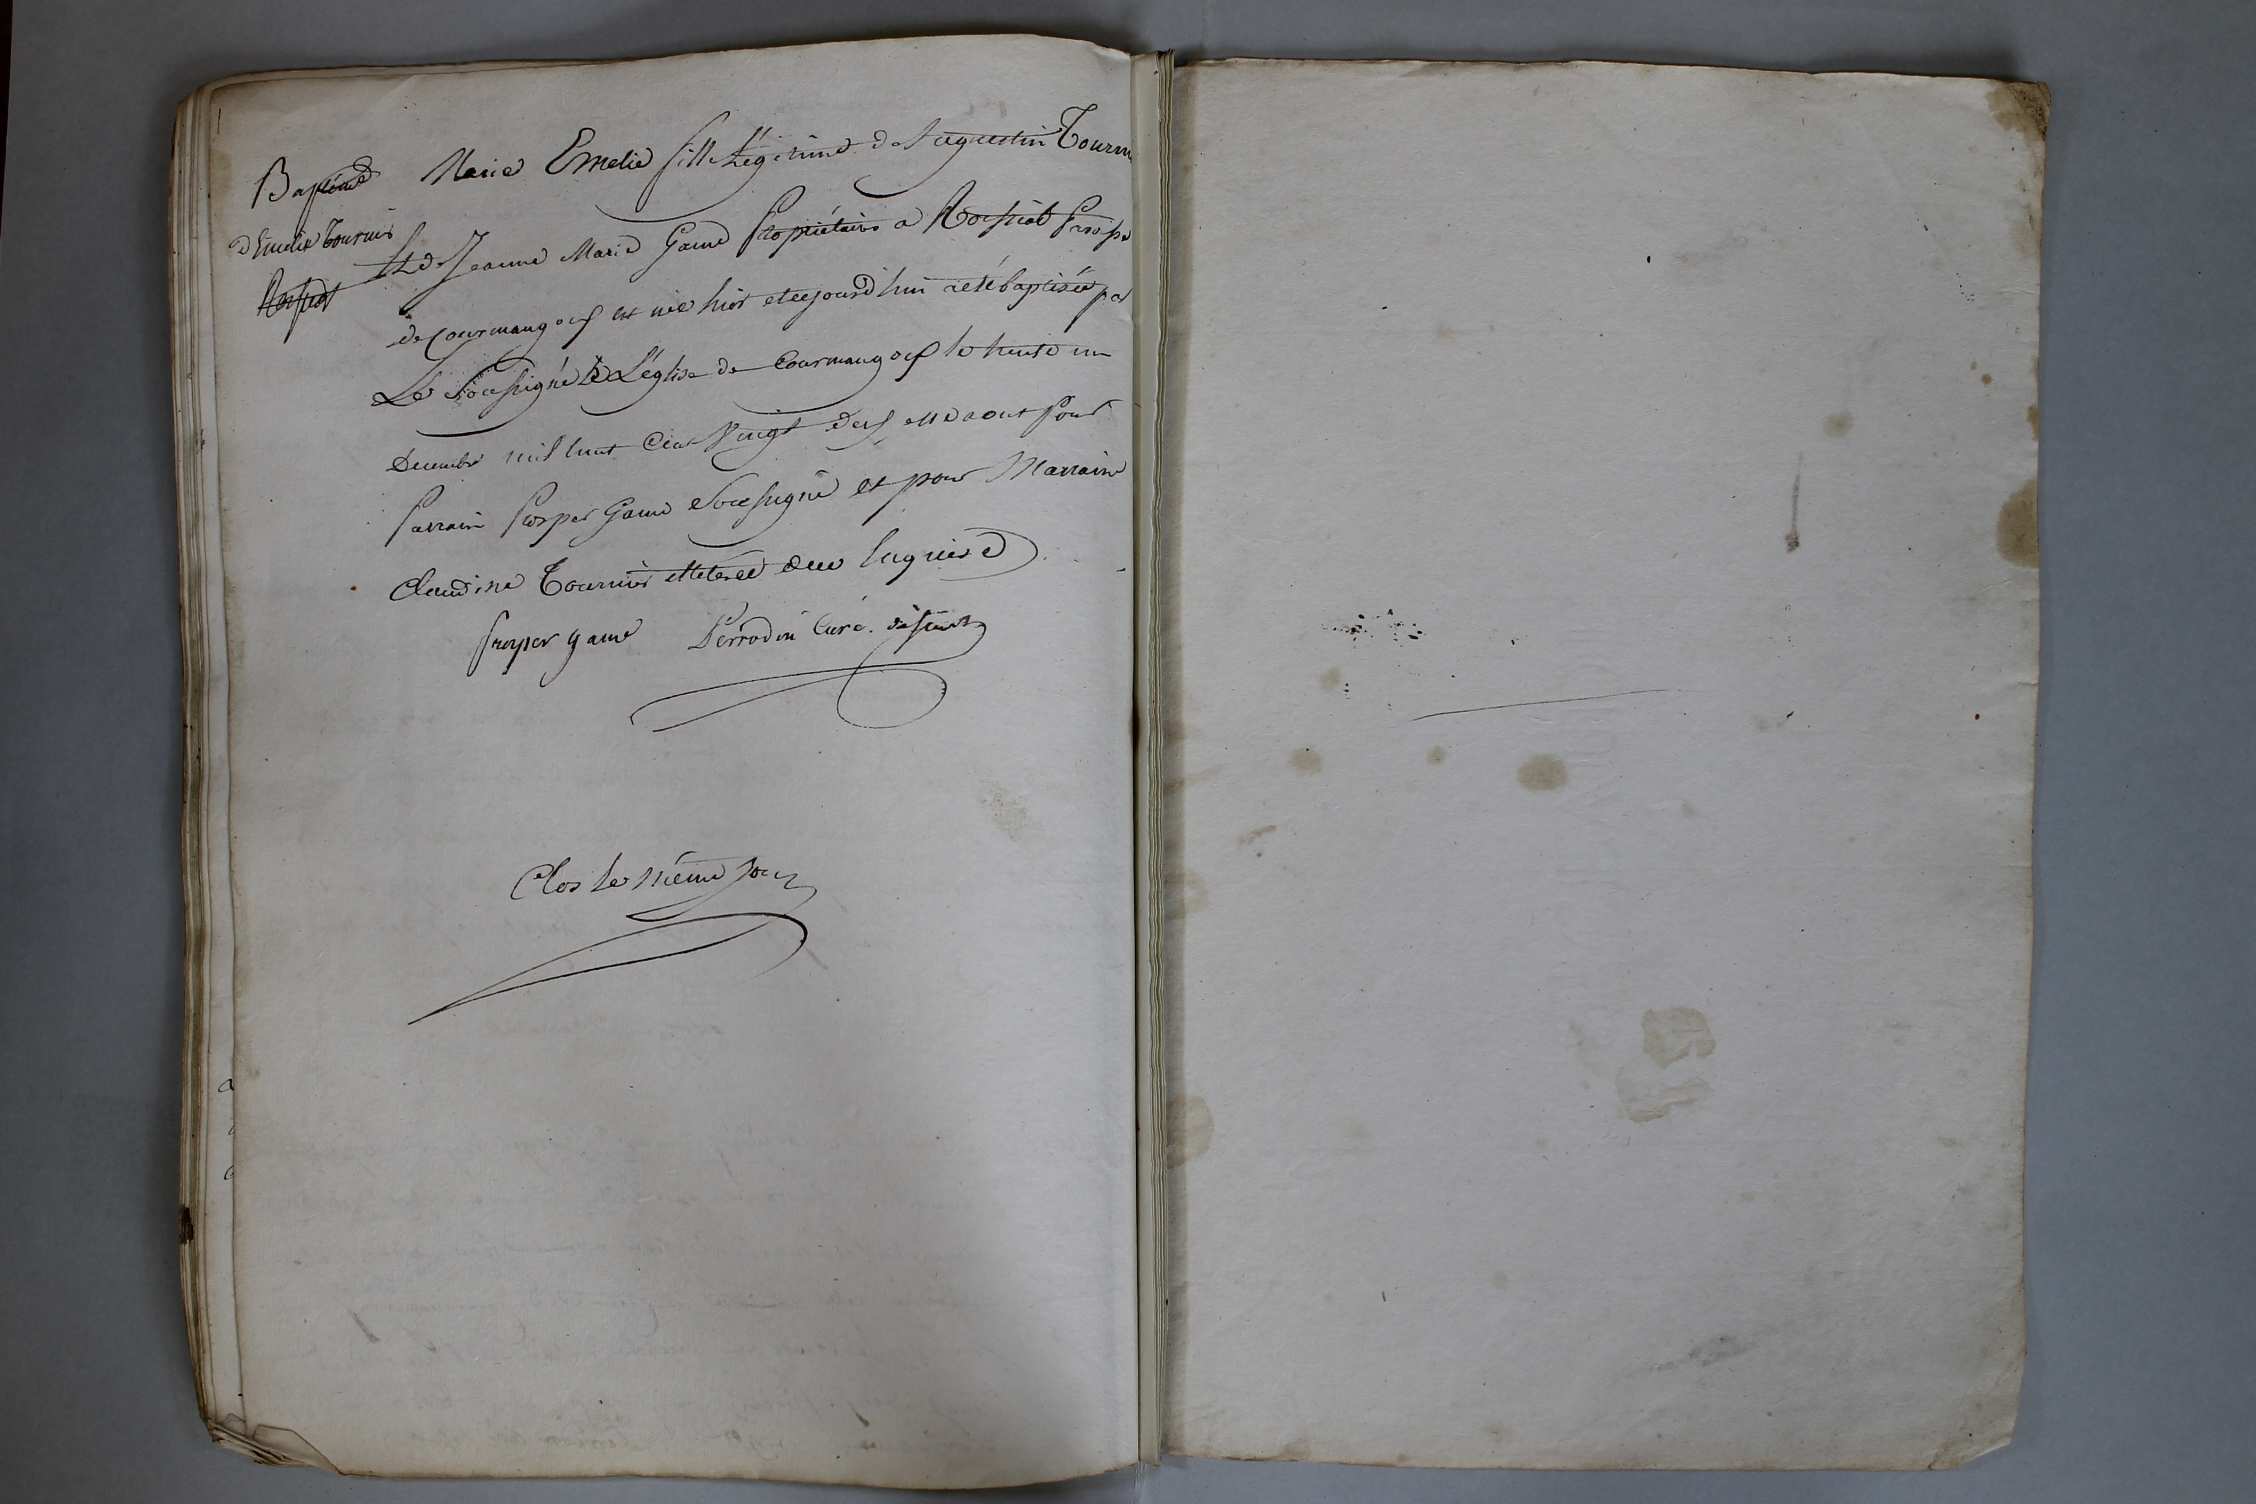 Baptême
d'Emelie Tournier
Rossiat
Marie Emelie fille Légitime de Augustin Tourni
Et de Jeanne Marie Game Propriétaires a Rossiat Paroisse
de Courmangoux est née hier et ce jourd'hui a eté baptisée par
Le Soussigné de L'église de Courmangoux le trente un
Decembre mil huit Cent Vingt deux elle a eut pour
Parrain Prosper Game Soussigné et pour Marraine
Claudine Tournier illeteree due Enquise
Prosper Game Perrodin Curé desservt
Clos Le Même Jour